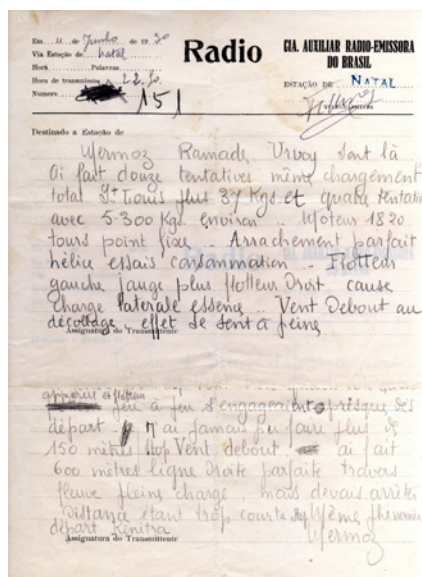 Em 11 de Junho de 1930
Via Estação de Natal
Hora Palavras
Hora de transmissão 22.30
Numero 151
Radio
CIA. AUXILIAR RADIO-EMISSORA
DO BRASIL
ESTAÇÃO DE NATAL
Destinado a Estação de
Mermoz Ramade, Urvoy sont là
ai fait douze tentatives même chargement
total St Louis plus 37 Kgs. et quatre tentati
avec 5.300 Kgs. environ .. Moteur 1820
tours point fixe .. Arrachement parfait
hélice essais consommation .. Flotteur
gauche jauge plus flotteur Droit cause
charge laterale essence .. Vent Debout au
décollage effet se sent à peine
Assignatura do Transmittente
et flotteurs
peu à peu s'engageaient presque des
départ. ai jamais pu faire plus de
150 mètres Stop Vent debout ai fait
600 mètres ligne Droite parfaite travers
fleuve pleine charge, mais devais arrêter
Distance étant trop courte Stop Même phenomèn
départ Kenitra
Mermoz
Assignatura do Transmittente